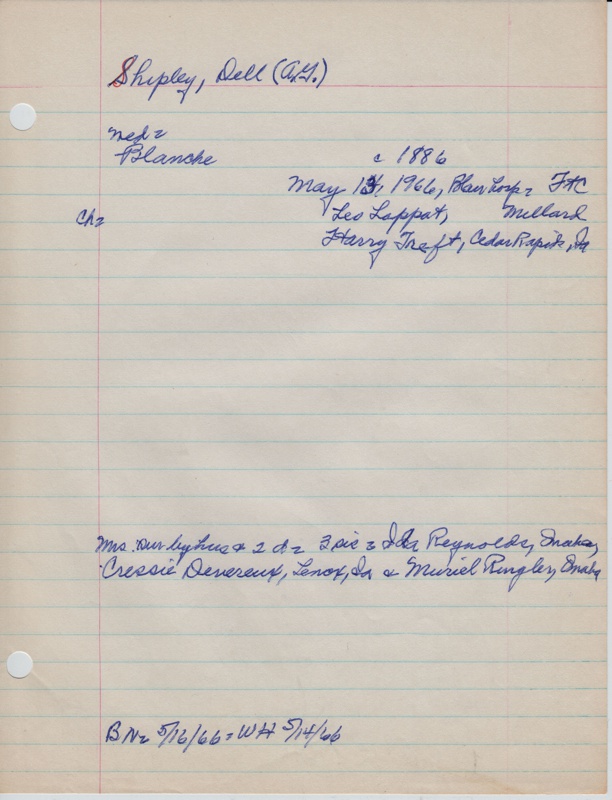 Shipley, Dell (A.Y.)
med =
Blanche c 1886
May 13, 1966, Blair hosp = FtC
Ch = Leo Lappat, Millard
Harry Treft, Cedar Rapids, Ia
Mrs. sur by hus & 2 d = 3 sis = Ida Reynolds, Omaha,
Cressie Devereux, Lenox, Ia & Muriel Ringler, Omaha
BN = 5/16/66 = WH 5/14/66